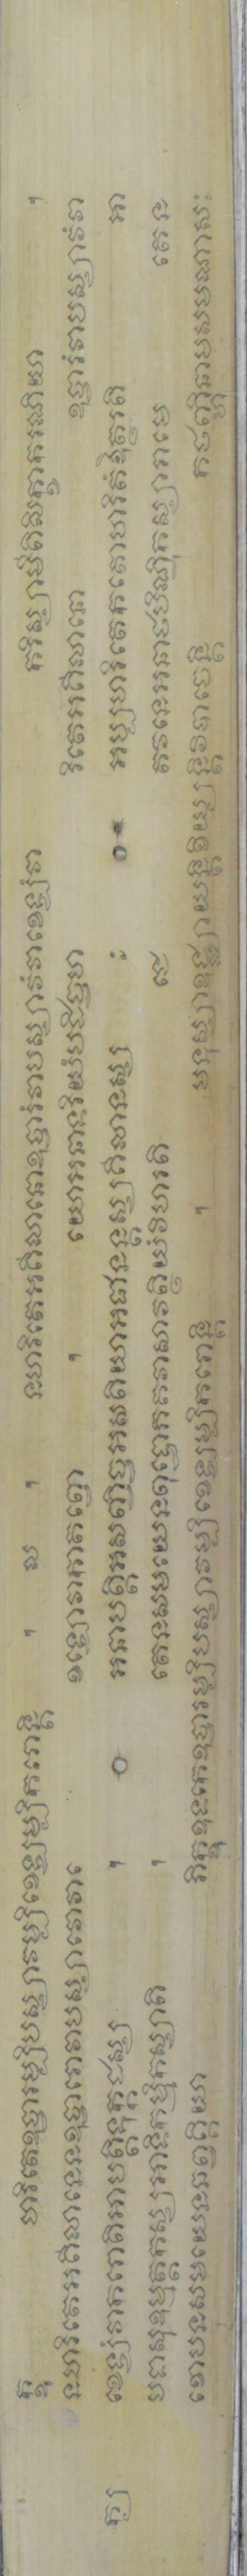 ក្ខុ ហរិតេឧច្ចារម្បិបស្សាវម្បិខេឡម្បិករោន្តិ ។ ល ។ នហរិតេអគិលានោឧច្ចារំវាបស្សាវំវាខេឡំវា ករិស្សាមីតិសិក្ខាករណីយា ។
នហរិតេអគិលានេនឧច្ចារោវាបស្សាវោវាខេ ខេឡោវាកាតព្វោ ។ យោអនាទរិយំបដិច្ចហ រិតេអគិលានោ ឧច្ចារំវាបស្សាវំវា
ខេឡំវាករោតិអាបត្តិទុក្កដស្ស ។ អនាបត្តិអសញ្ចិច្ចអសតិយាអជានន្តស្សគិលានស្ស ៖ អប្បហរិតេកតោហរិតំឱត្ថរតិ អា
បទាសុឧម្មត្តកស្សអាទិកម្មិកស្សាតិ ។ តេនសមយេនពុទ្ធោភគវាសាវត្ថិយំវិហរតិ ជេ តវនេអនាថបិណ្ឌិកស្សារាមេ តេន
ខោបនសមយេនឆព្វគ្គិយា ភិក្ខូឧទកេឧច្ចារម្បិបស្សាវម្បិខេឡម្បិករោន្តិ ។ មនុស្សាឧជ្ឈាយន្តិខិយ្យន្តិវិបាចេន្តិ កថញ្ហិនាមសមណាស៖